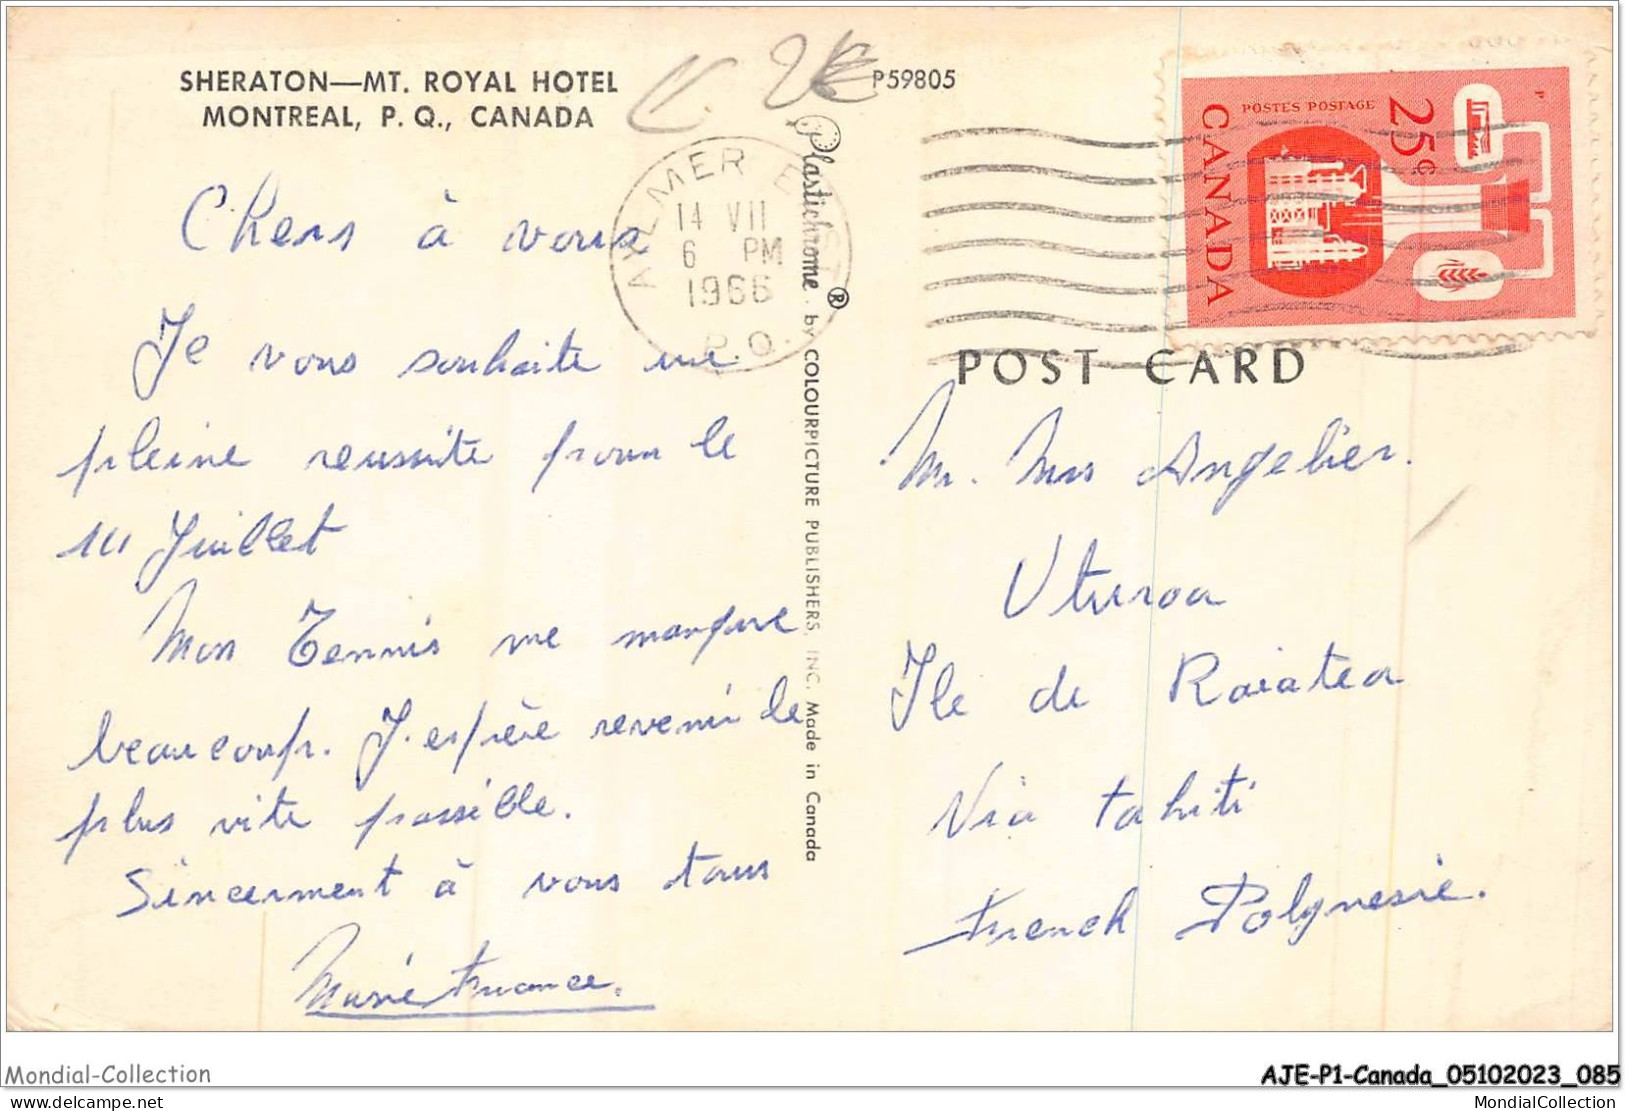 SHERATON—MT. ROYAL HOTEL
MONTREAL, P. Q., CANADA
P59805
2€
AYLMER EAST
14 VII
6 PM
1966
P.Q.
POSTES POSTAGE
25c
CANADA
Plastichrome ® by COLOURPICTURE PUBLISHERS, INC. Made in Canada
POST CARD
Chers à vous
Je vous souhaite une
pleine reussite pour le
14 Juillet
Mon Tennis me manque
beaucoup. J'espère revenir le
plus vite possible.
Sincerment à vous tous
Marie France.
Mr. Mrs Angelier.
Uturoa
Ile de Raiatea
Via tahiti
French Polynesie.
Mondial-Collection
AJE-P1-Canada_05102023_085
www.delcampe.net
MondialCollection